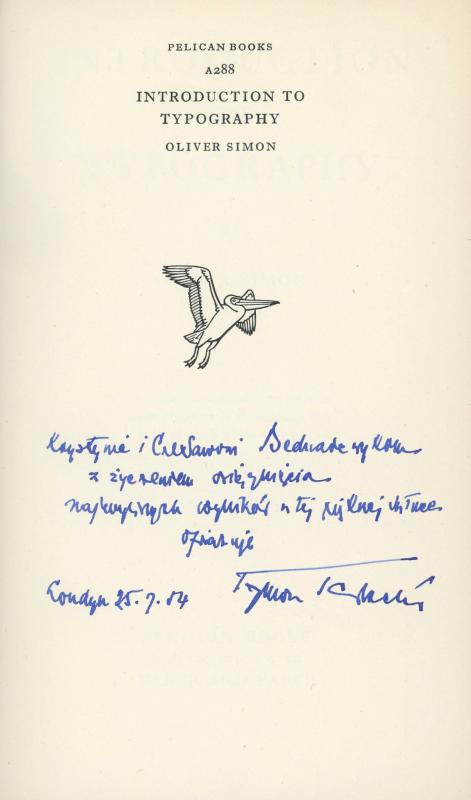 PELICAN BOOKS
A288
INTRODUCTION TO
TYPOGRAPHY
OLIVER SIMON
Krystynie i Czesławowi Bednarczykom
z życzeniem osiągnięcia
najwyższych wyników w tej pięknej sztuce
ofiaruje
Londyn 25.7.54
Tymon